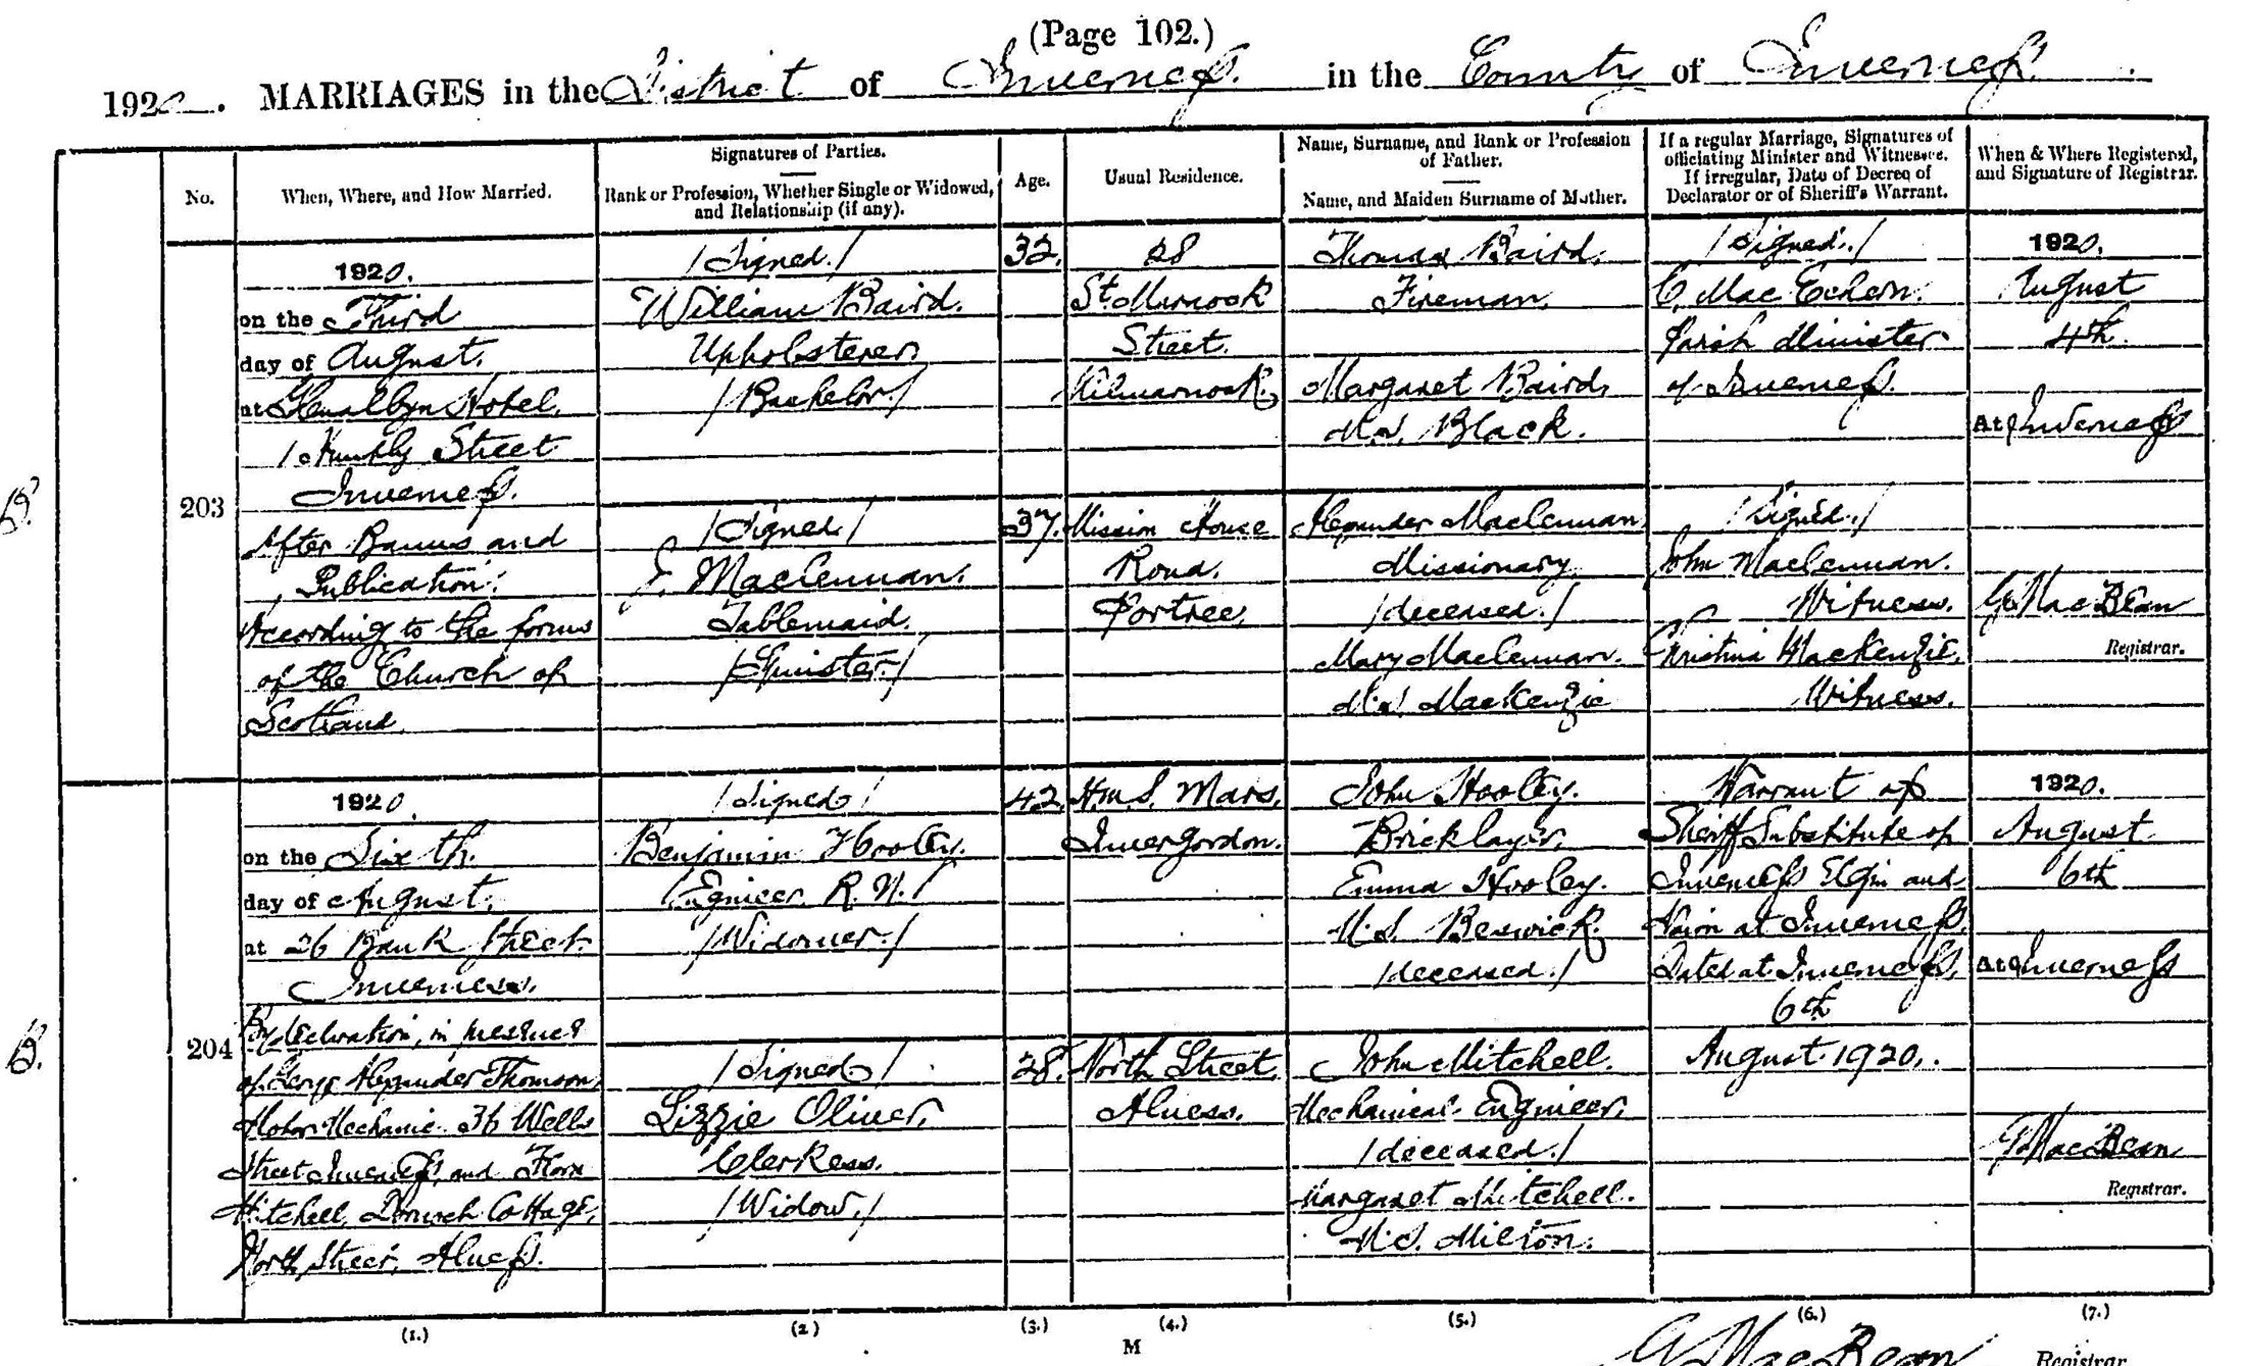 (Page 102.)
1920. MARRIAGES in the District of Inverness. in the County of Inverness.
No.
When, Where, and How Married.
Signatures of Parties.
Rank or Profession, Whether Single or Widowed,
and Relationship (if any).
Age.
Usual Residence.
Name, Surname, and Rank or Profession
of Father.
Name, and Maiden Surname of Mother.
If a regular Marriage, Signatures of
officiating Minister and Witnesses.
If irregular, Date of Decree of
Declarator or of Sheriff's Warrant.
When & Where Registered,
and Signature of Registrar.
203
1920.
on the Third
day of August.
at Glenalbyn Hotel,
1 Huntly Street
Inverness.
After Banns and
Publication.
According to the forms
of the Church of
Scotland.
/Signed./
William Baird.
Upholsterer
/Bachelor/
32.
28
St. Marnock
Street.
Kilmarnock.
Thomas Baird.
Fireman.
Margaret Baird,
M.S. Black.
/Signed./
C. Mac Echern.
Parish Minister
of Inverness.
1920.
August
4th.
At Inverness
/Signed/
J. Maclennan.
Tablemaid.
/Spinster/
37.
Mission House
Road.
Portree.
Alexander Maclennan
Missionary
/deceased./
Mary Maclennan.
M.S. MacKenzie
/Signed./
John Maclennan.
Witness.
Christina MacKenzie.
Witness.
G MacBean
Registrar.
204
1920.
on the Sixth.
day of August.
at 26 Bank Street
Inverness.
By declaration, in presence
of George Alexander Thomson,
Motor Mechanic. 36 Wells
Street Inverness and Flora
Mitchell, Cottage,
North Street, Alness.
/Signed/
Benjamin Hooley.
/Egnieer R. N./
/Widower./
42.
H.M.S. Mars,
Invergordon.
John Hooley.
Bricklayer,
Emma Hooley.
M.S. Beswick.
/deceased./
Warrant of
Sheriff Substitute of
Inverness Elgin and
Nairn at Inverness.
Dated at Inverness,
6th
August 1920.
1920.
August
6th
At Inverness
/Signed/
Lizzie Oliver,
Clerkess.
/Widow./
28.
North Street,
Alness.
John Mitchell.
Mechanical Engineer,
/deceased./
Margaret Mitchell.
M.S. Milton.
G MacBean
Registrar.
(1.)
(2)
(3.)
(4.)
(5.)
(6.)
(7.)
M
G MacBean
Registrar